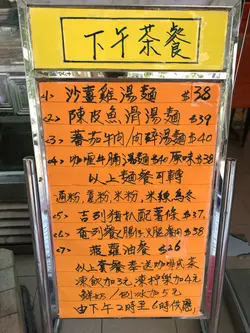 下午茶餐
<1> 沙薑雞湯麵 $38
<2> 陳皮魚滑湯麵 $39
<3> 蕃茄牛肉/肉碎湯麵 $40
<4> 咖喱牛腩湯麵 $40 原味 $38
以上麵餐可轉
通粉,意粉,米粉,米線,烏冬
<5> 吉列猪扒配薯條 $37
<6>
<7> 菠蘿油餐 $26
以上套餐奉送咖啡或茶
凍飲加3元,凍檸樂加4元
鮮奶/ 加5元
由下午2時至6時供應